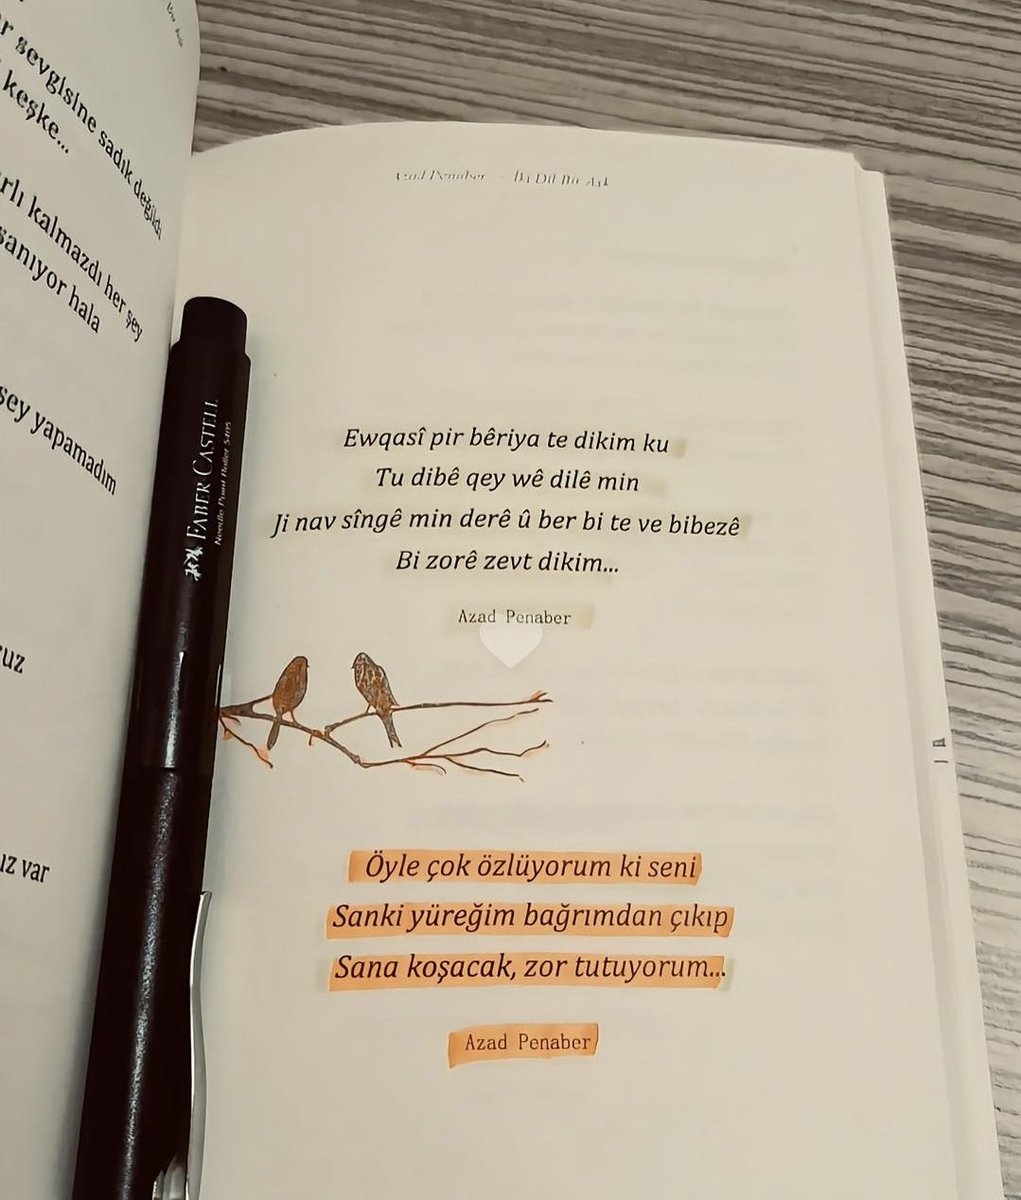 sevgisine sadık değildi
keşke...
kalmazdı her şey
hala
şey yapamadım
var
Azad Penaber
FABER CASTELL
Needle Point Roller 5405
Ewqasî pir bêriya te dikim ku
Tu dibê qey wê dilê min
Ji nav sîngê min derê û ber bi te ve bibezê
Bi zorê zevt dikim...
Azad Penaber
Öyle çok özlüyorum ki seni
Sanki yüreğim bağrımdan çıkıp
Sana koşacak, zor tutuyorum...
Azad Penaber